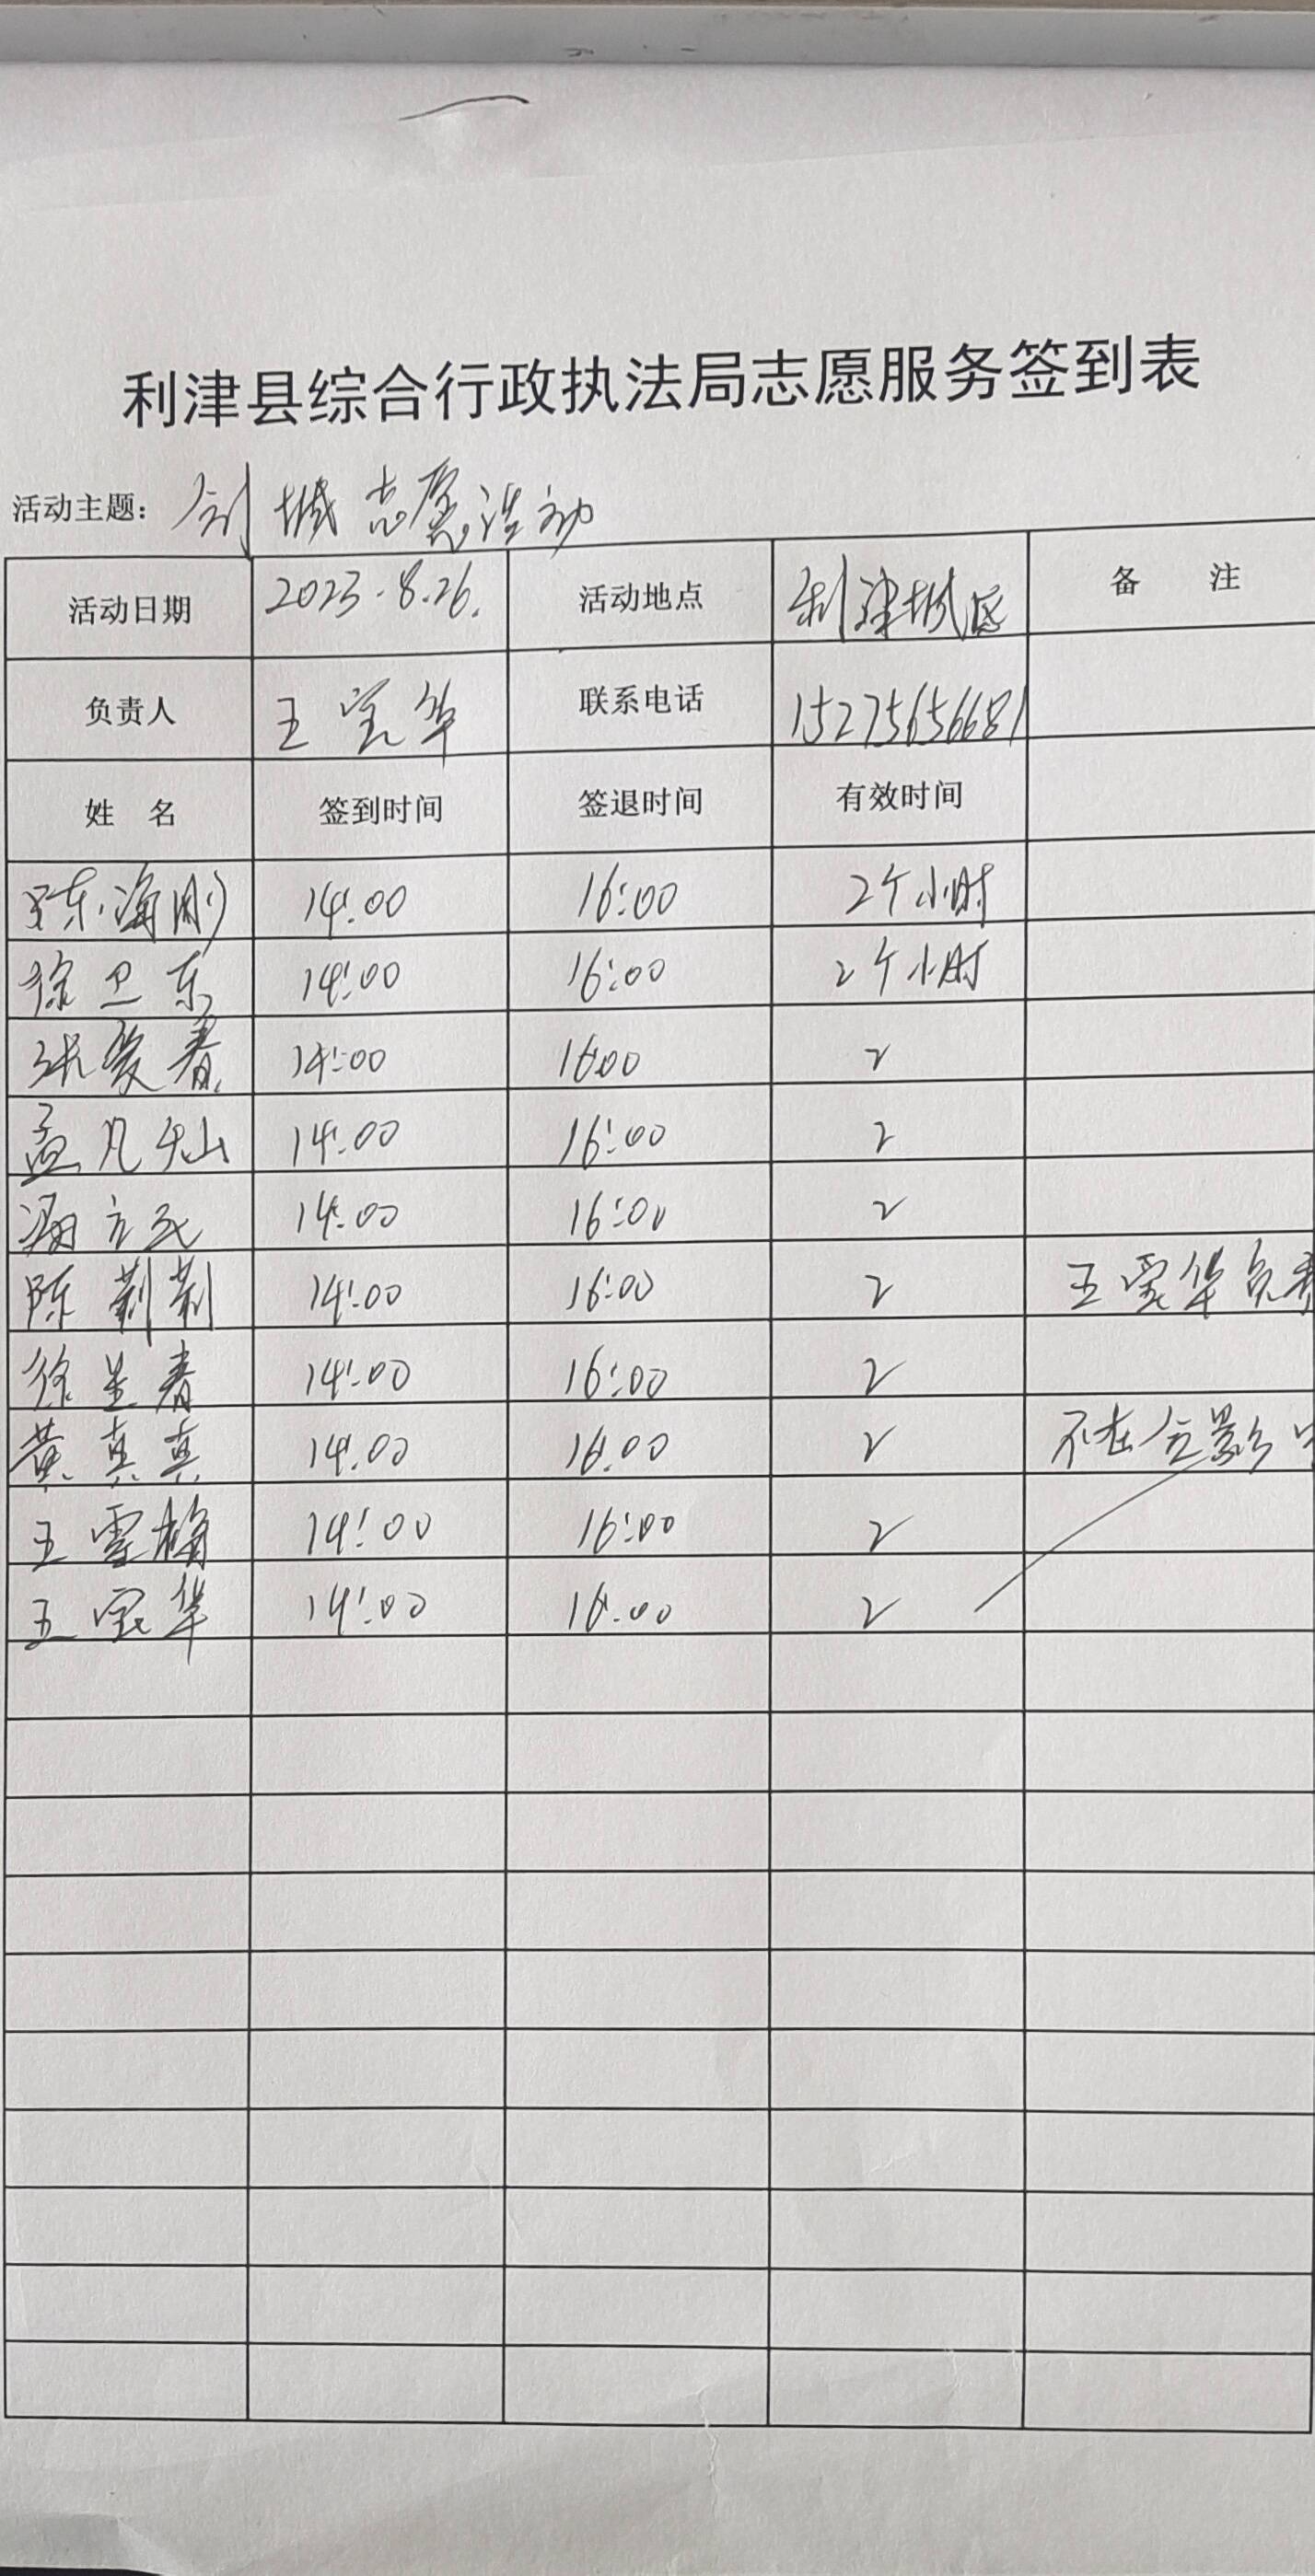 利津县综合行政执法局志愿服务签到表
活动主题: 创城志愿活动
活动日期 2023.8.26. 活动地点 利津城区 备 注
负责人 王宝华 联系电话 15275656681
姓 名 签到时间 签退时间 有效时间
陈海刚 14:00 16:00 2个小时
徐卫东 14:00 16:00 2个小时
张爱春 14:00 16:00 2
孟凡 14:00 16:00 2
14:00 16:00 2
陈莉莉 14:00 16:00 2 王宝华负责
徐呈春 14:00 16:00 2
黄真真 14:00 16:00 2 不在合影中
王雪梅 14:00 16:00 2
王宝华 14:00 16:00 2